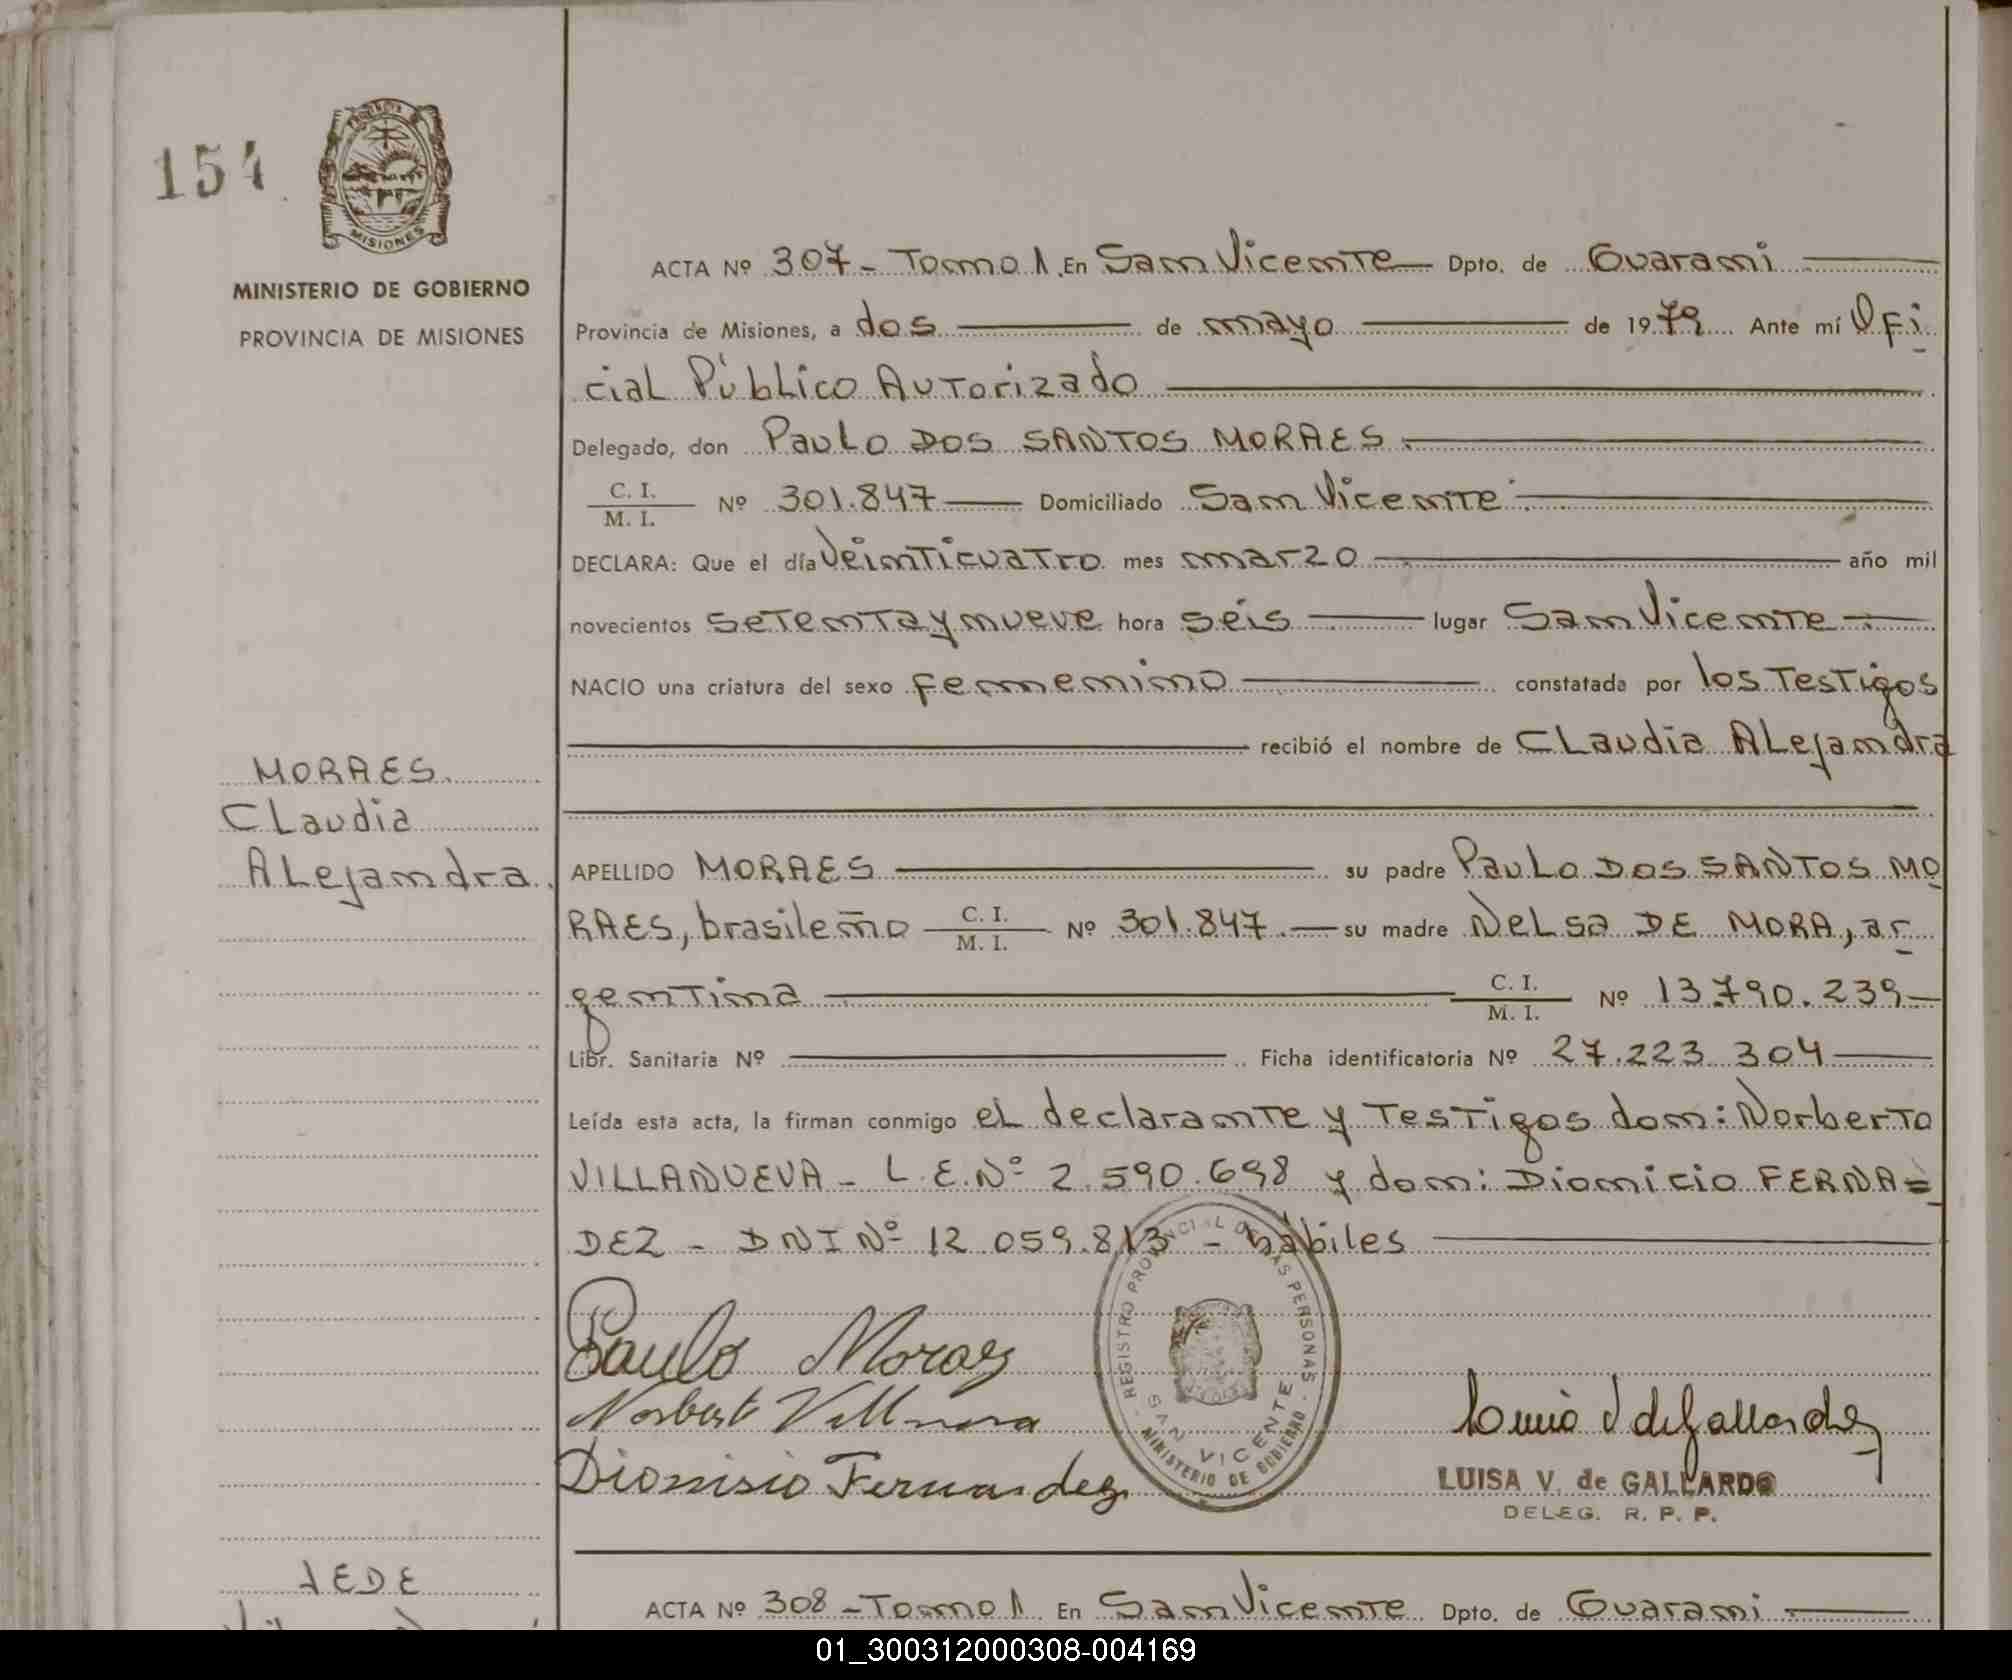 154
MISIONES
MINISTERIO DE GOBIERNO
PROVINCIA DE MISIONES
ACTA Nº 307 - Tomo 1 En San Vicente Dpto. de Guaraní
Provincia de Misiones, a dos de mayo de 1979 Ante mí Ofi
cial Público Autorizado
Delegado, don Paulo DOS SANTOS MORAES.
C. I.
M. I. Nº 301.847 Domiciliado San Vicente
DECLARA: Que el día Veinticuatro mes marzo año mil
novecientos setenta y nueve hora seis lugar San Vicente
NACIO una criatura del sexo femenino constatada por los Testigos
recibió el nombre de Claudia Alejandra
MORAES.
Claudia
Alejandra.
APELLIDO MORAES su padre Paulo DOS SANTOS MO
RAES, brasileño C. I. M. I. Nº 301.847. su madre Nelsa DE MORA, ar
gentina C. I. M. I. Nº 13.790.239
Libr. Sanitaria Nº Ficha identificatoria Nº 27.223.304
Leída esta acta, la firman conmigo el declarante y Testigos don: Norberto
VILLANUEVA - L.E.Nº 2.590.698 y don: Dionicio FERNA=
DEZ - DNI Nº 12.059.813 - hábiles
Paulo Moraes
Norberto Villanueva
Dionisio Fernandez
REGISTRO PROVINCIAL DE LAS PERSONAS
SAN VICENTE
MINISTERIO DE GOBIERNO
LUISA V. de GALLARDO
DELEG. R. P. P.
ACTA Nº 308 - Tomo 1 En San Vicente Dpto. de Guaraní
01_300312000308-004169